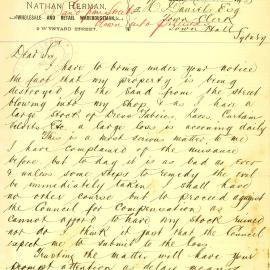 NATHAN HERMAN,
WHOLESALE AND RETAIL WAREHOUSEMAN,
WYNYARD STREET.
Daniel Esq
Town Clerk
Town Hall
Sydney
Dear Sir
I have to bring under your notice
the fact that my property is being
destroyed by the Sand from the street
blowing into my shop & as I have a
large stock of Dress Fabrics, Laces, Curtain
&c a large loss is accruing daily
This is a most serious matter to me
I have complained of the nuisance
before but to day it is as bad as ever
& unless some steps to remedy the evil
be immediately taken I shall have
no other course but to proceed against
the Council for Compensation as I
cannot afford to have my stock ruined
nor do I think it just that the Council
expect me to submit to the loss
Trusting the matter will have your
prompt attention as delay means